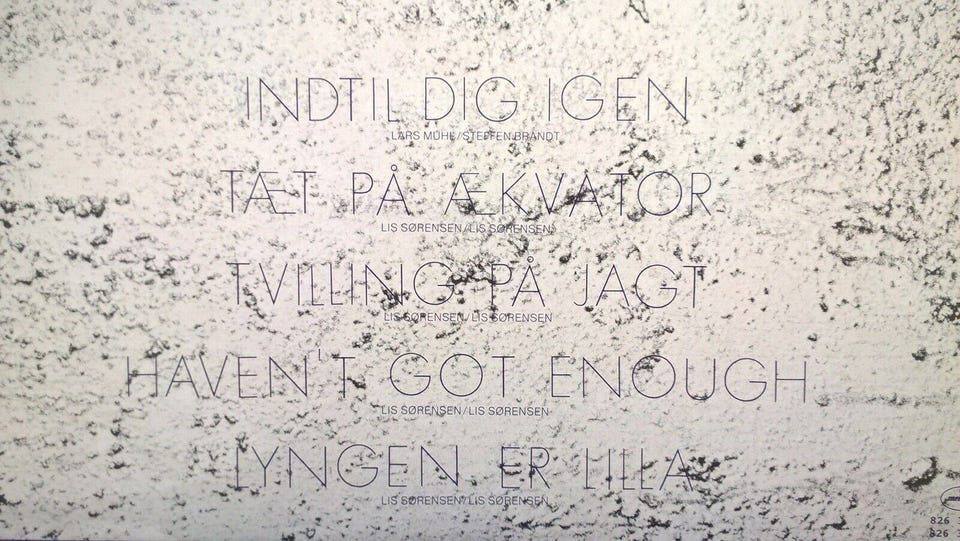 INDTIL DIG IGEN
LARS MUHL/STEFFEN BRANDT
TÆT PÅ ÆKVATOR
LIS SØRENSEN/LIS SØRENSEN
TVILLING PÅ JAGT
LIS SØRENSEN/LIS SØRENSEN
HAVEN'T GOT ENOUGH
LIS SØRENSEN/LIS SØRENSEN
LYNGEN ER LILLA
LIS SØRENSEN/LIS SØRENSEN
826
826